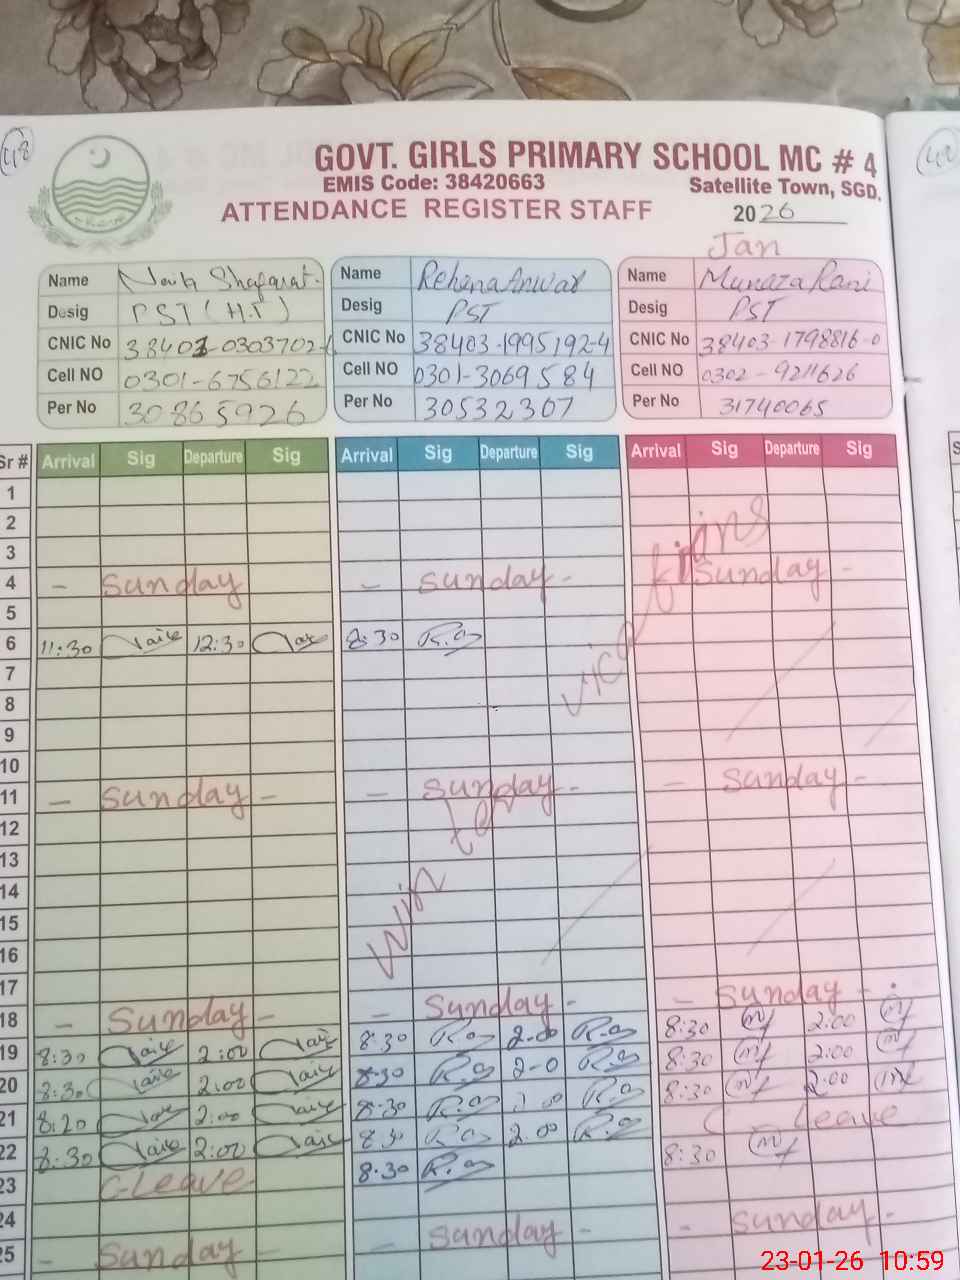 48
GOVT. GIRLS PRIMARY SCHOOL MC # 4
EMIS Code: 38420663
Satellite Town, SGD.
ATTENDANCE REGISTER STAFF
2026
Jan
Name Naib Shafqat. Name Rehena Anwar Name Munaza Rani
Desig PST (H.T) Desig PST Desig PST
CNIC No 38403-0303702- CNIC No 38403-1995192-4 CNIC No 38403-1798816-0
Cell NO 0301-6756122 Cell NO 0301-3069584 Cell NO 0302-9211626
Per No 30865926 Per No 30532307 Per No 31740065
Sr # Arrival Sig Departure Sig Arrival Sig Departure Sig Arrival Sig Departure Sig
1
2
3
4 - Sunday - Sunday - Sunday -
5
6 11:30 12:30 8:30 R.a
7
8
9
10
11 - Sunday - - Sunday - - Sunday -
12
13
14
15
16
winter vications
17
18 - Sunday - - Sunday - - Sunday -
19 8:30 2:00 8:30 R.a 2.00 R.a 8:30 m 2:00 m
20 8:30 2:00 8:30 R.a 2-0 R.a 8:30 m 2:00 m
21 8:20 2:00 8:30 R.a 00 R.a 8:30 m 2:00 m
22 8:30 2:00 8:3 R.a 2.00 R.a C Leave
23 C-Leave 8.30 R.a 8:30 m
24
25 - Sunday - - Sunday - - Sunday -
23-01-26 10:59